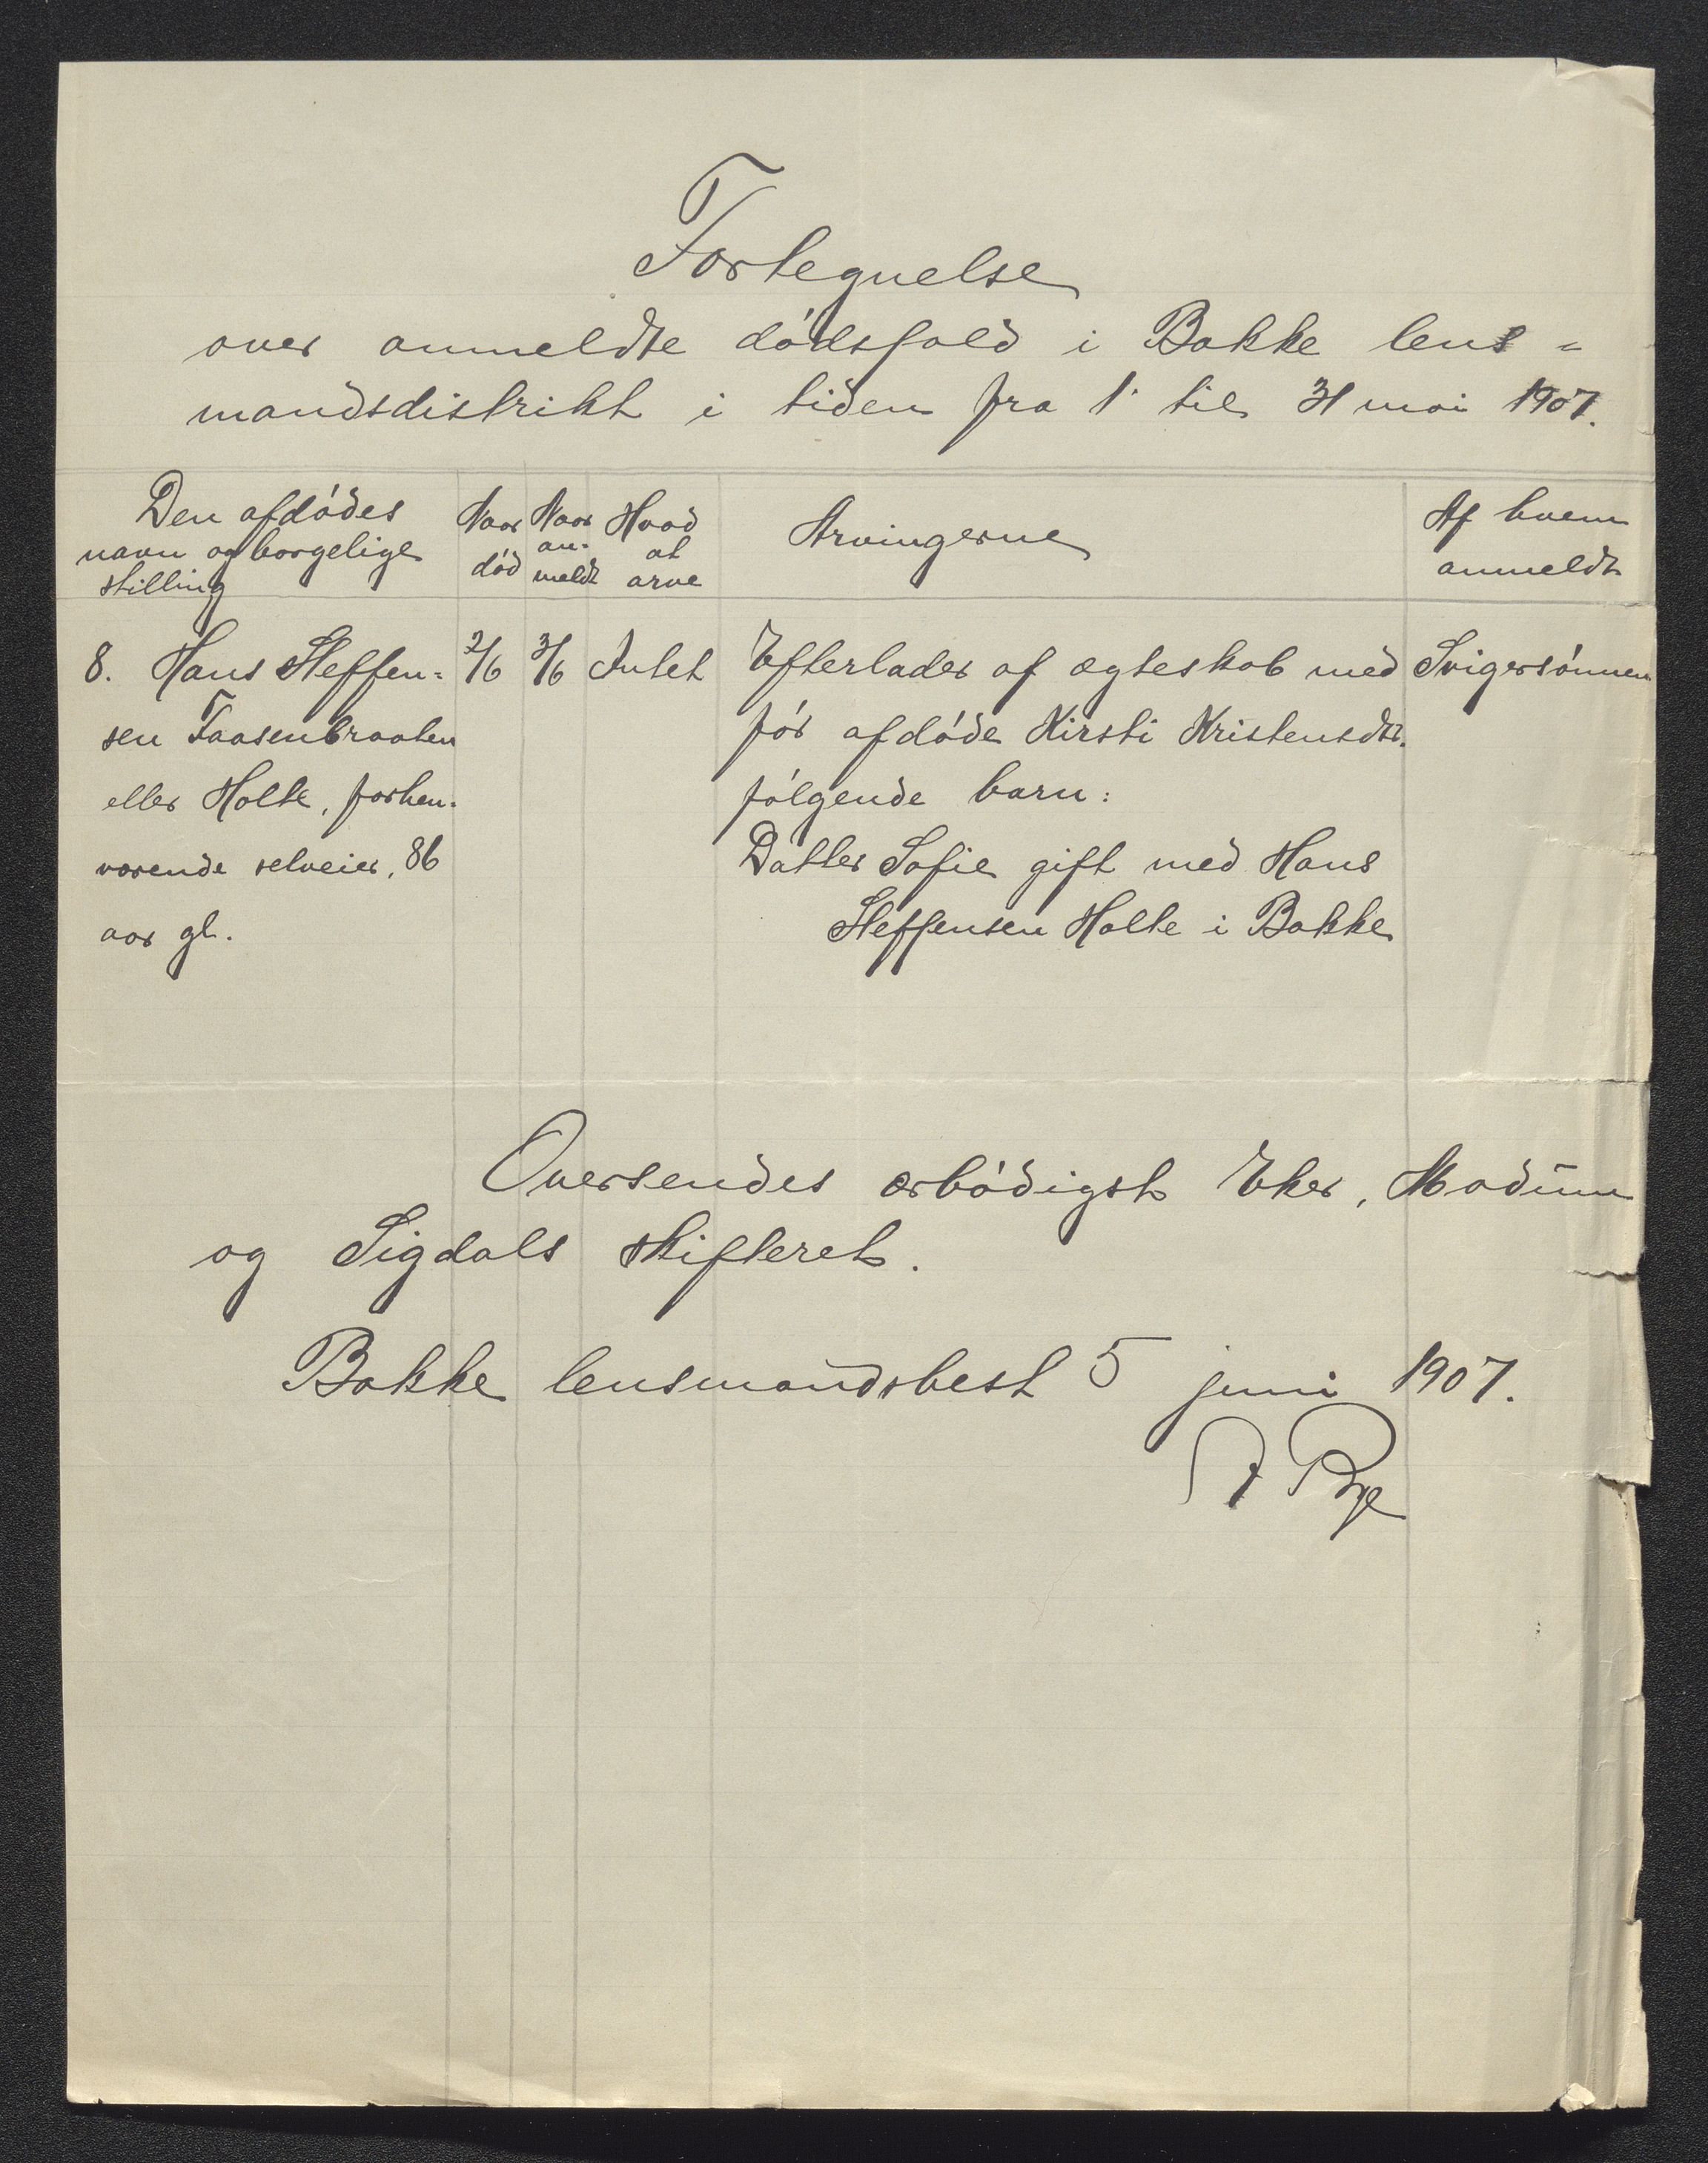 Fortegnelse
over anmeldte dødsfald i Bakke lens=
mandsdistrikt i tiden fra 1. til 31 mai 1907.
Den afdødes
navn og borgelige
stilling
Naar
død
Naar
an-
meldt
Hvad
at
arve
Arvingerne
Af hvem
anmeldt
8. Hans Steffen=
sen Faasenbraaten
eller Holte, forhen-
værende selveier, 86
aar gl.
2/6
3/6
Intet
Efterlader af ægteskab med
før afdøde Kirsti Kristensdtr.
følgende barn:
Datter Sofie gift med Hans
Steffensen Holte i Bakke
Svigersønnen
Oversendes ærbødigst Eker, Modum
og Sigdals skifteret.
Bakke lensmandsbest 5 juni 1907.
Bye